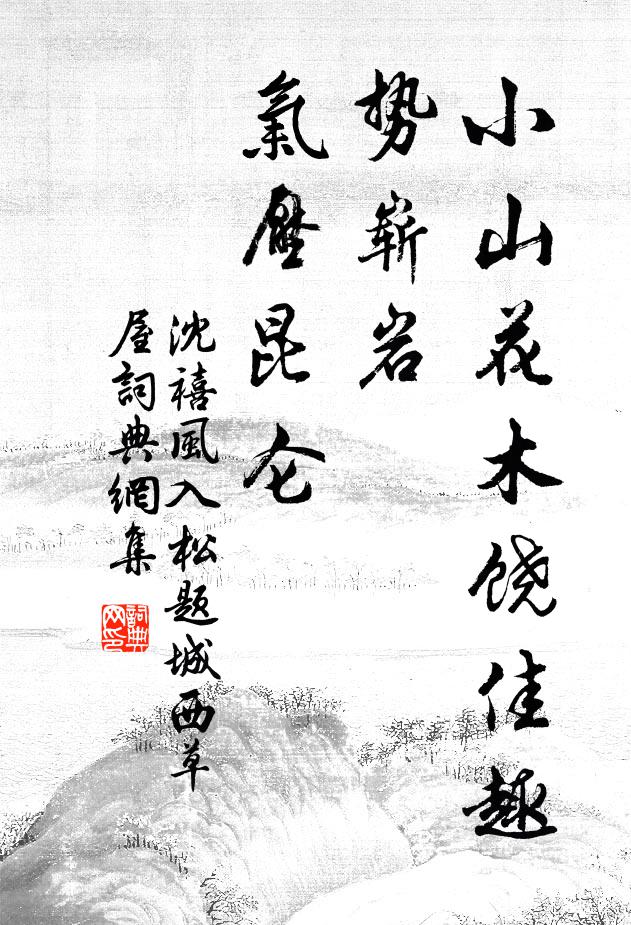 小山花木饶佳趣
势崭岩
氣壓昆仑
沈禧風入松题城西草
屋詞典網集
詞典
网印